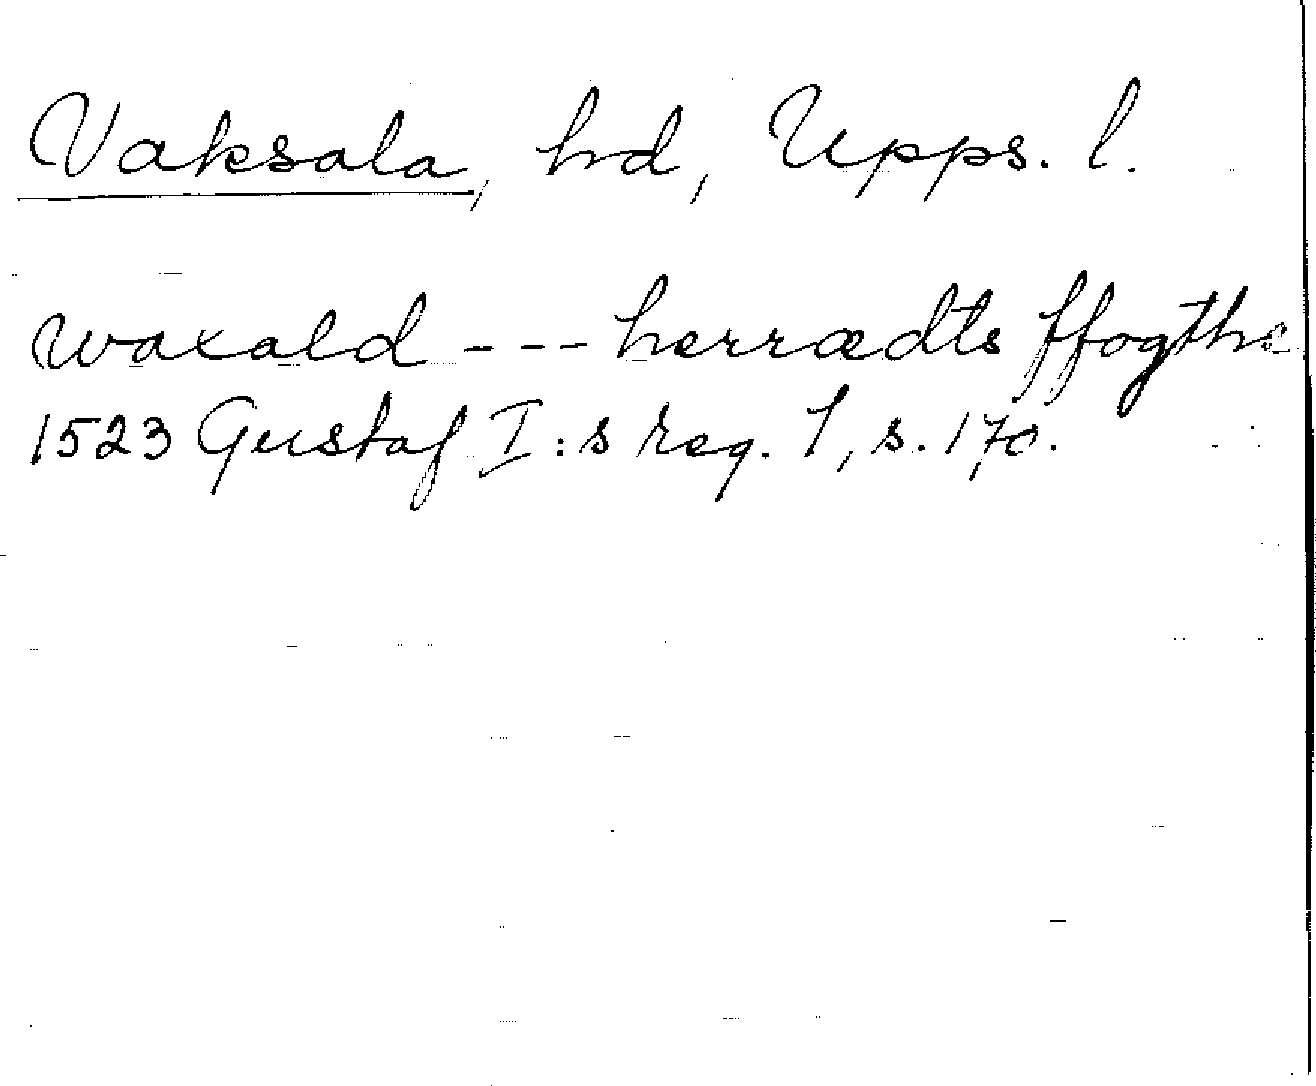 Vaksala, hd, Upps. l.
waxald --- herrædts ffogthe
1523 Gustaf I:s reg. 1, s. 170.